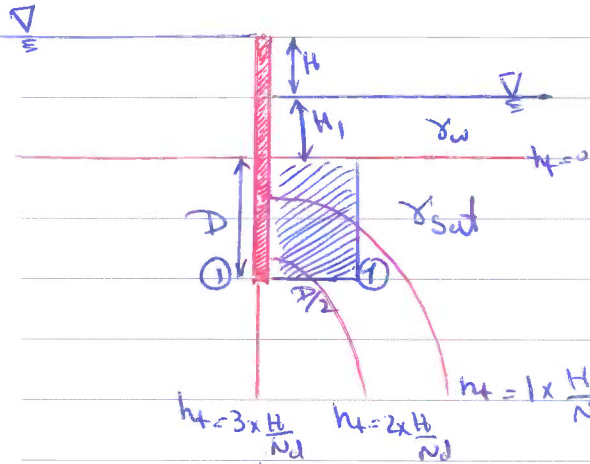 H
H₁
γw
h_t=0
D
γsat
① ①
D/2
h_t = 1 × H/N
h_t = 3 × H/Nd h_t = 2 × H/Nd